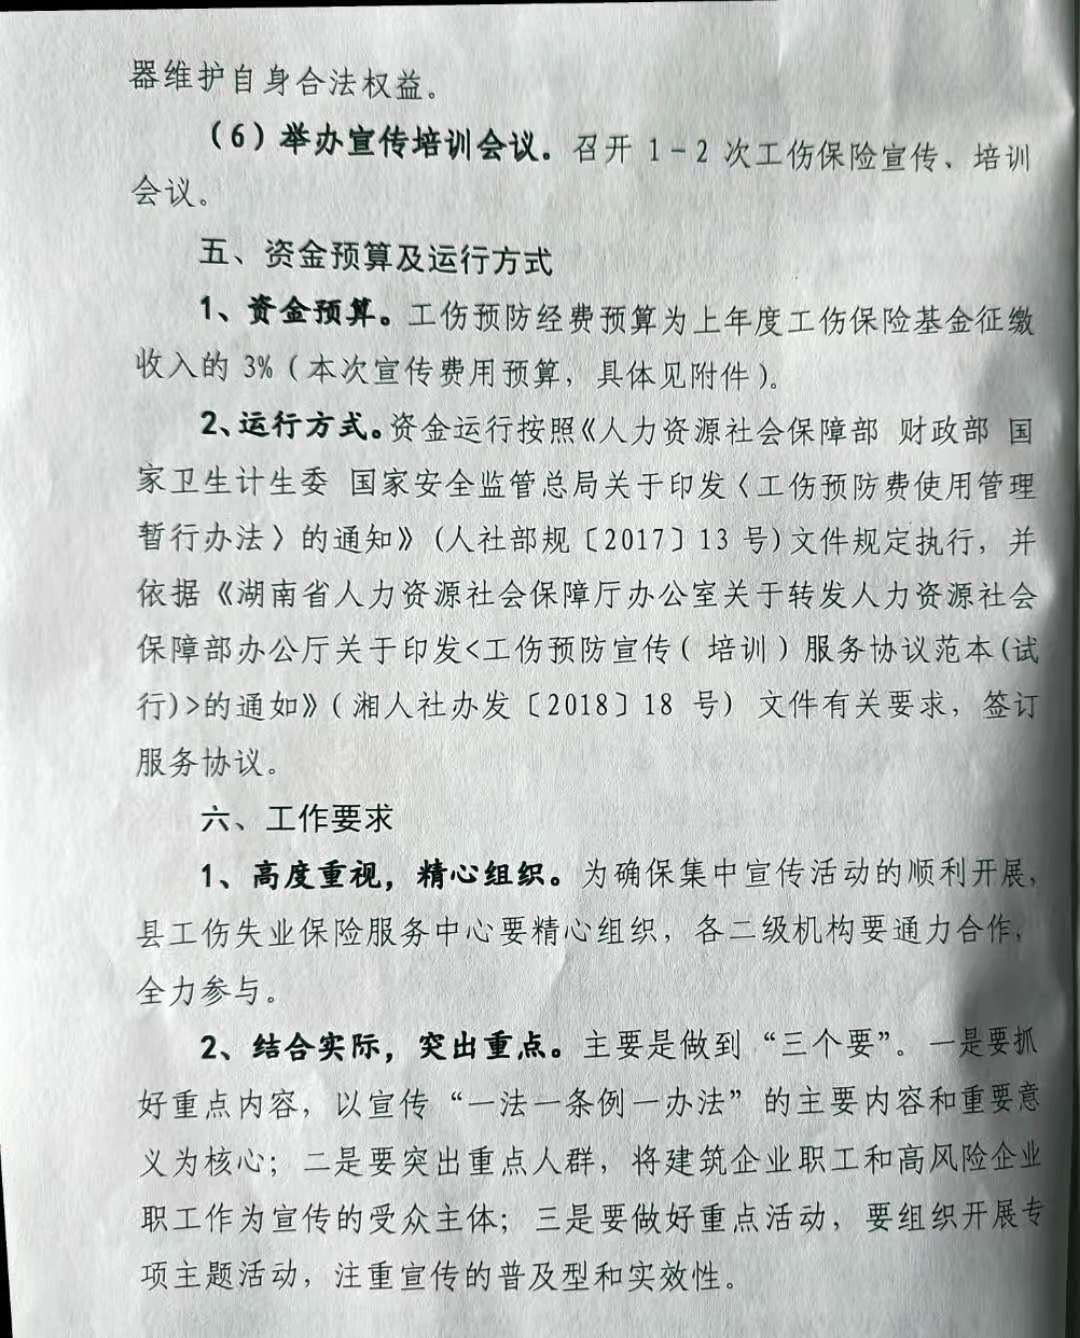 器维护自身合法权益。
（6）举办宣传培训会议。召开 1-2 次工伤保险宣传、培训
会议。
五、资金预算及运行方式
1、资金预算。工伤预防经费预算为上年度工伤保险基金征缴
收入的 3%（本次宣传费用预算，具体见附件）。
2、运行方式。资金运行按照《人力资源社会保障部 财政部 国
家卫生计生委 国家安全监管总局关于印发〈工伤预防费使用管理
暂行办法〉的通知》(人社部规〔2017〕13 号)文件规定执行，并
依据《湖南省人力资源社会保障厅办公室关于转发人力资源社会
保障部办公厅关于印发<工伤预防宣传（培训）服务协议范本(试
行)>的通如》（湘人社办发〔2018〕18 号）文件有关要求，签订
服务协议。
六、工作要求
1、高度重视，精心组织。为确保集中宣传活动的顺利开展，
县工伤失业保险服务中心要精心组织，各二级机构要通力合作，
全力参与。
2、结合实际，突出重点。主要是做到“三个要”。一是要抓
好重点内容，以宣传“一法一条例一办法”的主要内容和重要意
义为核心；二是要突出重点人群，将建筑企业职工和高风险企业
职工作为宣传的受众主体；三是要做好重点活动，要组织开展专
项主题活动，注重宣传的普及型和实效性。